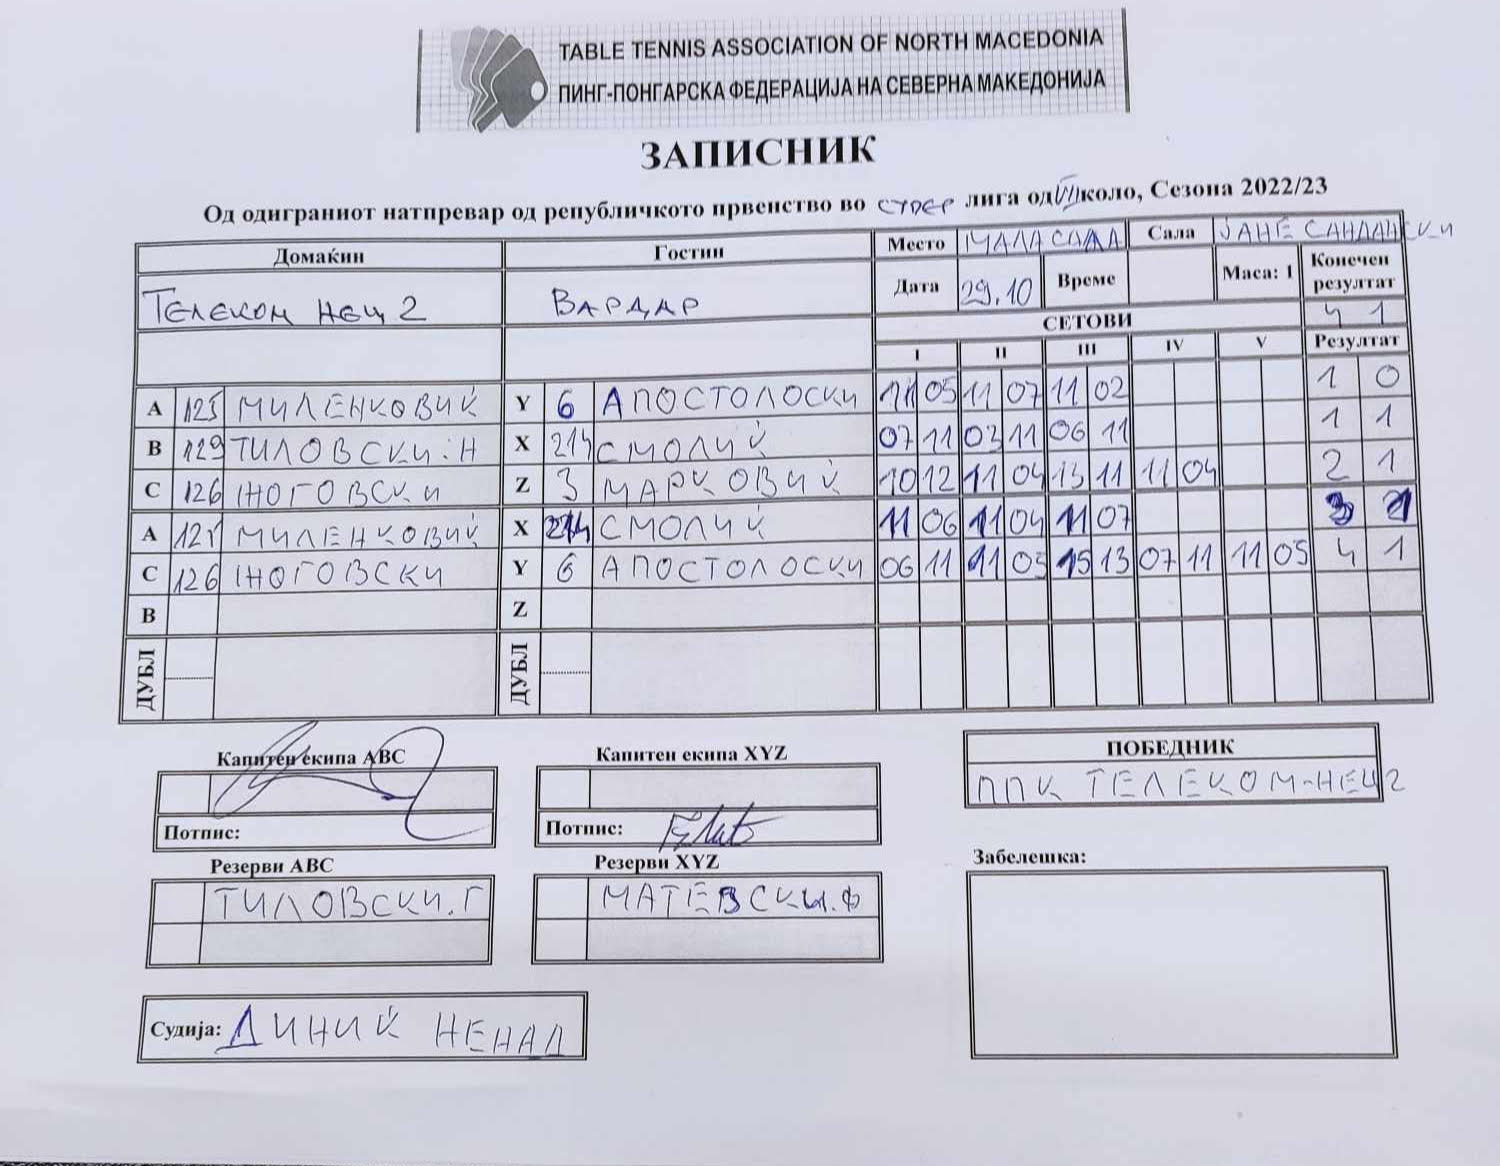 TABLE TENNIS ASSOCIATION OF NORTH MACEDONIA
ПИНГ-ПОНГАРСКА ФЕДЕРАЦИЈА НА СЕВЕРНА МАКЕДОНИЈА
ЗАПИСНИК
Од одиграниот натпревар од републичкото првенство во СУПЕР лига од VII коло, Сезона 2022/23
Домаќин Гостин Место МАЛА САЛА Сала ЈАНЕ САНДАНСКИ
Телеком НЕЦ 2 Вардар Дата 29.10 Време Маса: 1 Конечен резултат
СЕТОВИ 4 1
I II III IV V Резултат
A 125 МИЛЕНКОВИЌ Y 6 АПОСТОЛОСКИ 11 05 11 07 11 02 1 0
B 129 ТИЛОВСКИ.Н X 214 СМОЛИЌ 07 11 03 11 06 11 1 1
C 126 ЈНОГОВСКИ Z 3 МАРКОВИЌ 10 12 11 04 13 11 11 04 2 1
A 125 МИЛЕНКОВИЌ X 214 СМОЛИЌ 11 06 11 04 11 07 3 1
C 126 ЈНОГОВСКИ Y 6 АПОСТОЛОСКИ 06 11 11 05 15 13 07 11 11 05 4 1
B Z
ДУБЛ ДУБЛ
Капитен екипа ABC Капитен екипа XYZ ПОБЕДНИК
ППК ТЕЛЕКОМ-НЕЦ 2
Потпис: Потпис:
Резерви ABC Резерви XYZ Забелешка:
ТИЛОВСКИ.Г МАТЕВСКИ.Ф
Судија: ДИНИЌ НЕНАД